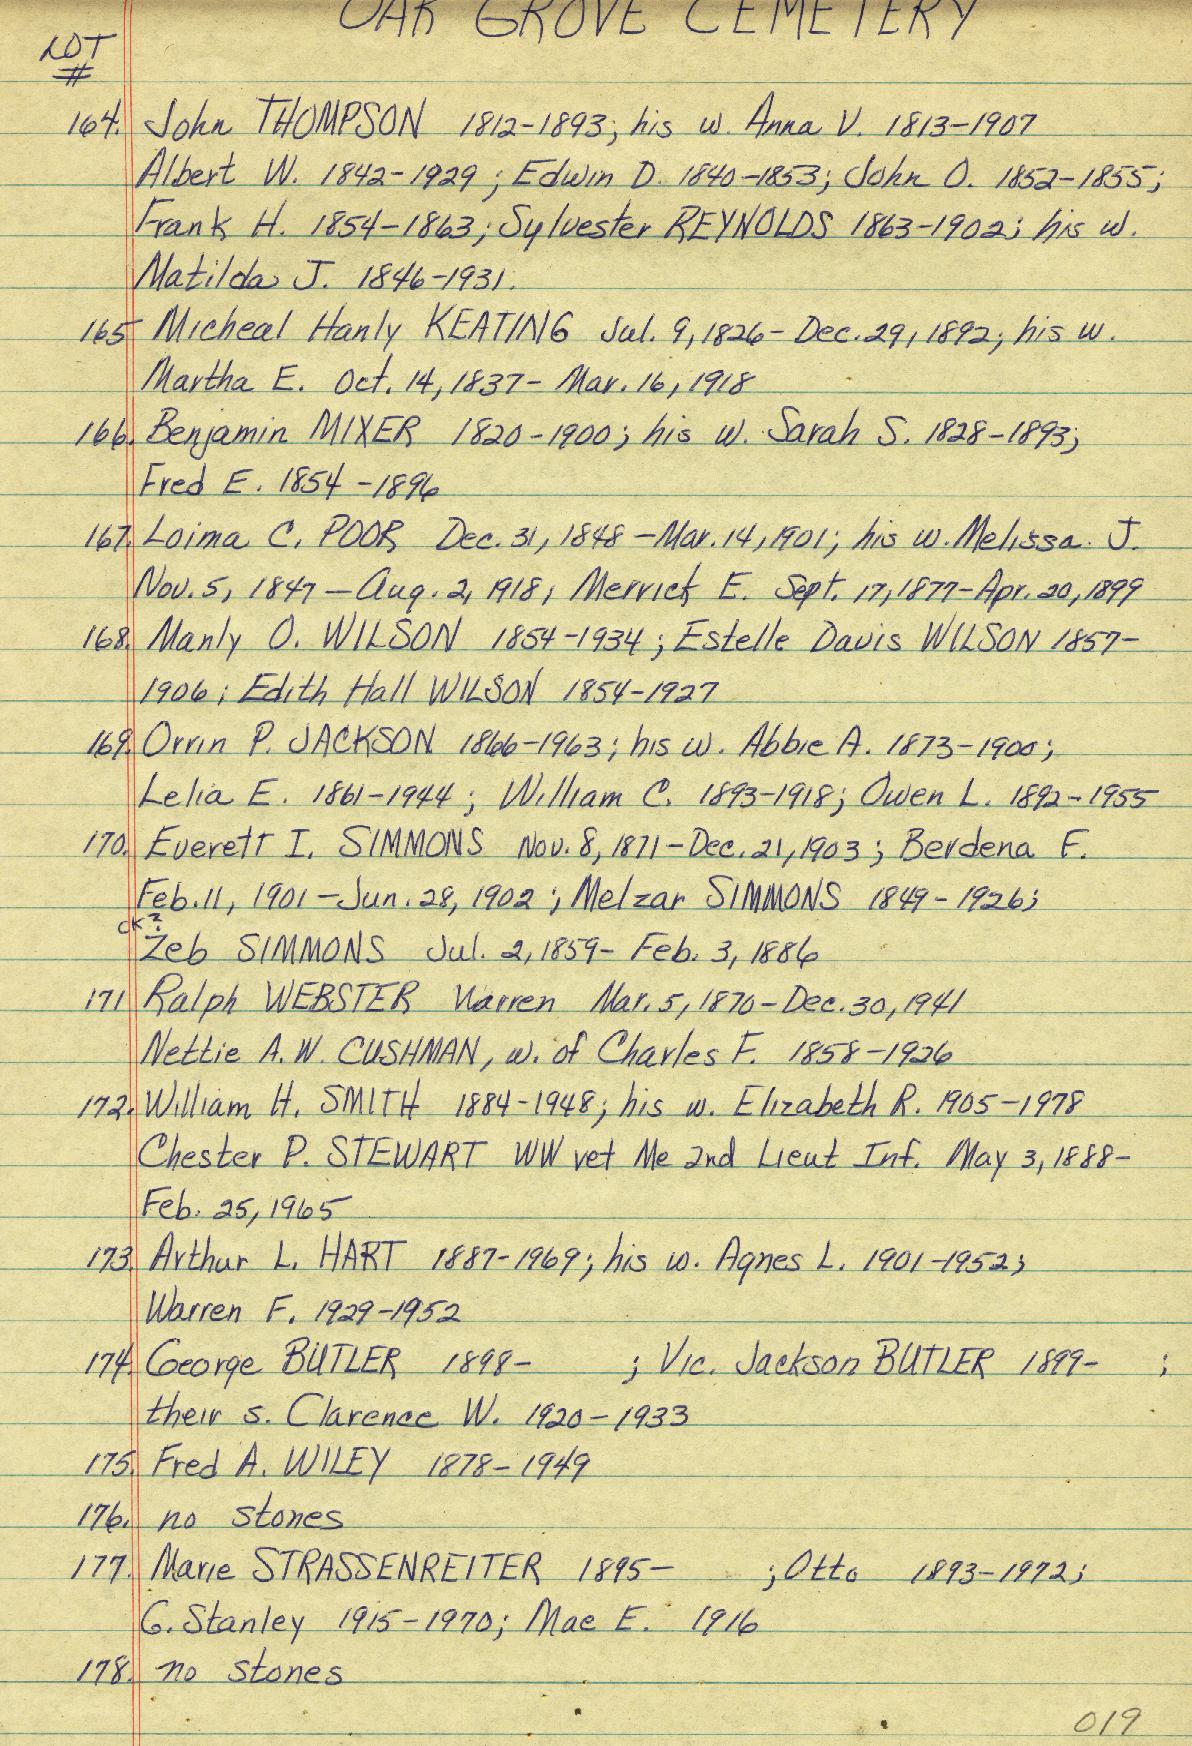 OAK GROVE CEMETERY
LOT
#
164. John THOMPSON 1812-1893; his w. Anna V. 1813-1907
Albert W. 1842-1929; Edwin D. 1840-1853; John O. 1852-1855;
Frank H. 1854-1863; Sylvester REYNOLDS 1863-1902; his w.
Matilda J. 1846-1931.
165 Micheal Hanly KEATING Jul. 9, 1826- Dec. 29, 1892; his w.
Martha E. Oct. 14, 1837- Mar. 16, 1918
166. Benjamin MIXER 1820-1900; his w. Sarah S. 1828-1893;
Fred E. 1854-1896
167. Loima C. POOR Dec. 31, 1848-Mar. 14, 1901; his w. Melissa J.
Nov. 5, 1847-Aug. 2, 1918; Merrick E. Sept. 17, 1877-Apr. 20, 1899
168. Manly O. WILSON 1854-1934; Estelle Davis WILSON 1857-
1906; Edith Hall WILSON 1854-1927
169. Orrin P. JACKSON 1866-1963; his w. Abbie A. 1873-1900;
Lelia E. 1861-1944; William C. 1893-1918; Owen L. 1892-1955
170. Everett I. SIMMONS Nov. 8, 1871-Dec. 21, 1903; Berdena F.
Feb. 11, 1901-Jun. 28, 1902; Melzar SIMMONS 1849-1926;
ck?
Zeb SIMMONS Jul. 2, 1859- Feb. 3, 1886
171 Ralph WEBSTER Warren Mar. 5, 1870-Dec. 30, 1941
Nettie A. W. CUSHMAN, w. of Charles F. 1858-1926
172. William H. SMITH 1884-1948; his w. Elizabeth R. 1905-1978
Chester P. STEWART WW vet Me 2nd Lieut Inf. May 3, 1888-
Feb. 25, 1965
173. Arthur L. HART 1887-1969; his w. Agnes L. 1901-1952;
Warren F. 1929-1952
174. George BUTLER 1898- ; Vic. Jackson BUTLER 1899- ;
their s. Clarence W. 1920-1933
175. Fred A. WILEY 1878-1949
176. no stones
177. Marie STRASSENREITER 1895- ; Otto 1893-1972;
G. Stanley 1915-1970; Mae E. 1916
178. no stones
019